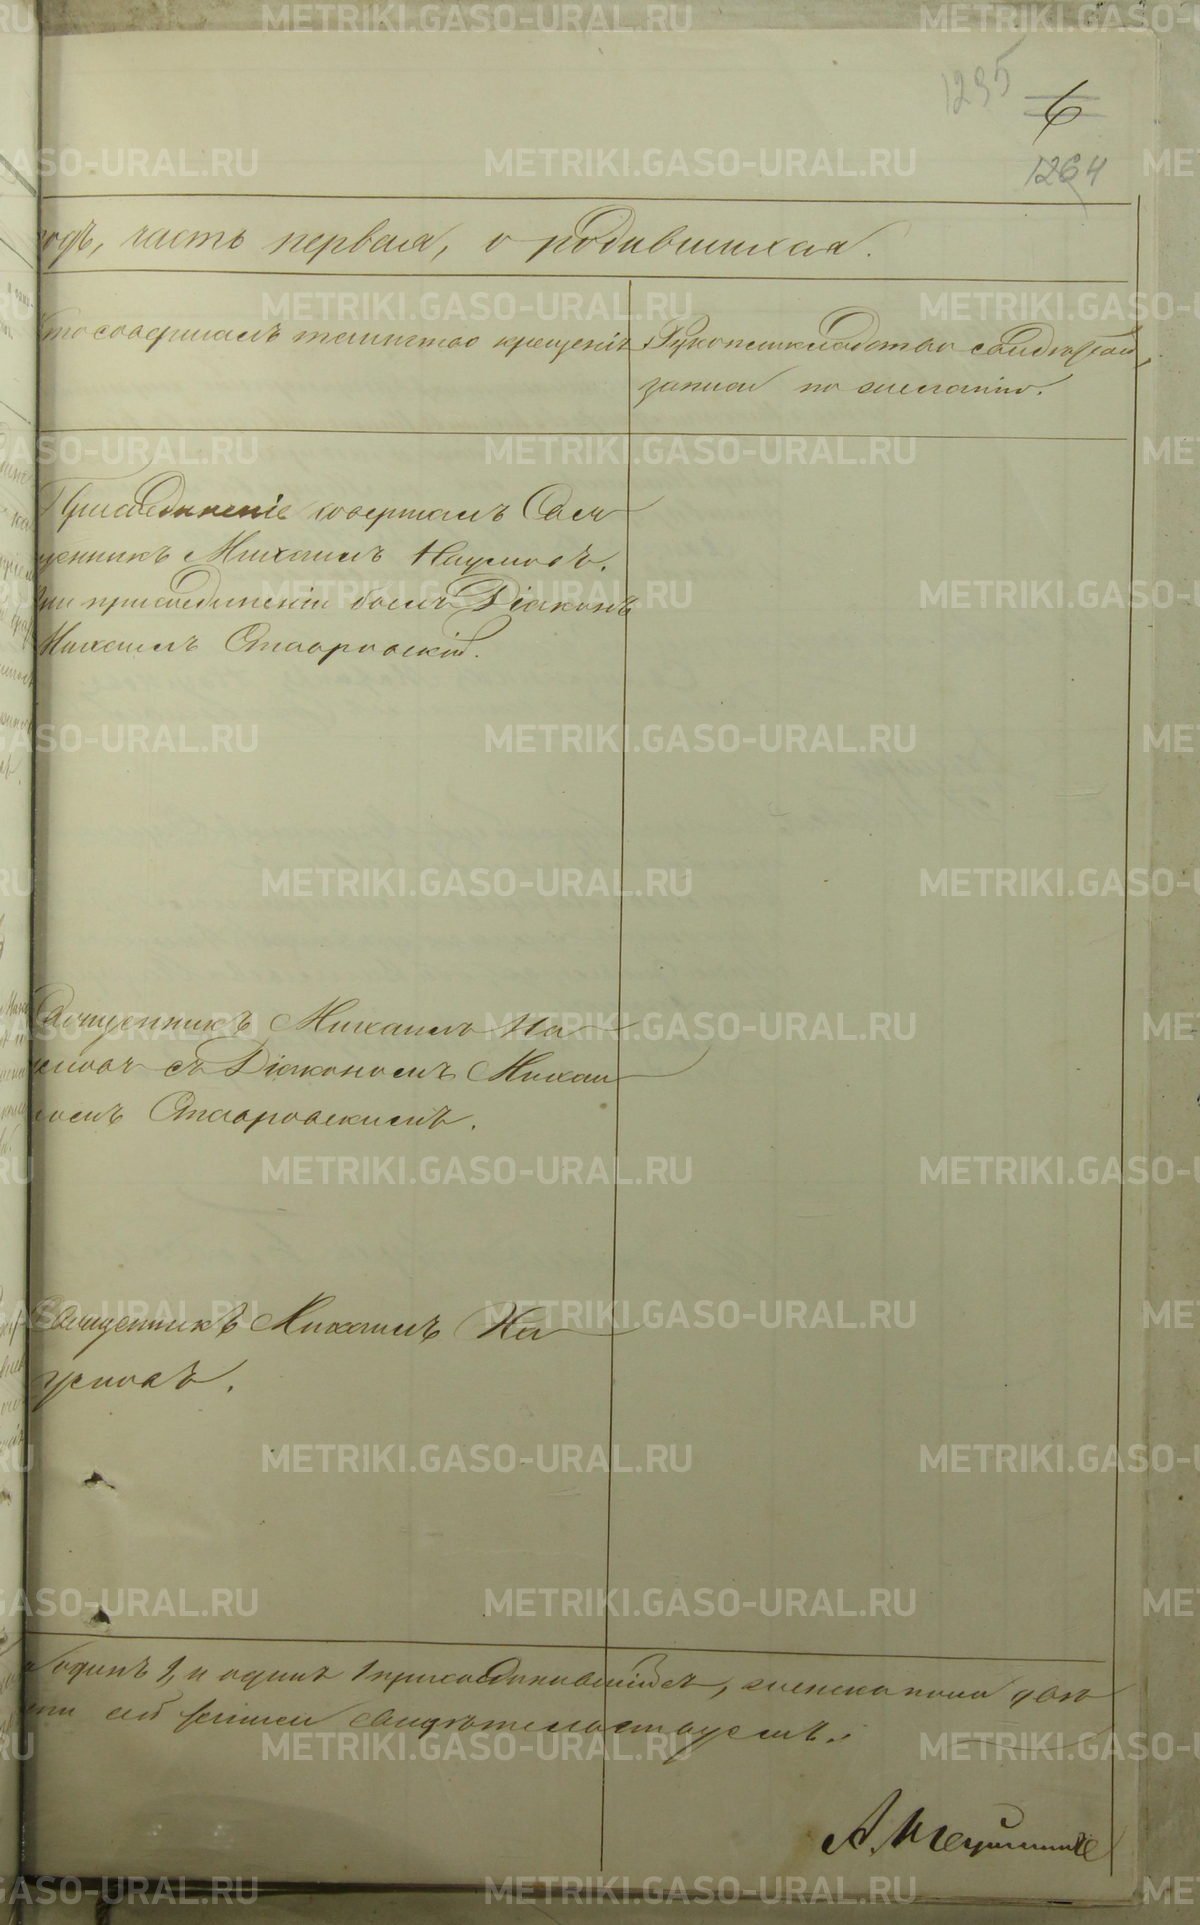 1295
6
1264
годъ, часть первая, о родившихся.
Кто совершалъ таинство крещенія
Рукоприкладство свидѣтелей
записи по желанію.
Присоединеніе совершалъ Свя
щенникъ Михаилъ Наумовъ.
При присоединеніи былъ Діаконъ
Михаилъ Ставровскій.
Священникъ Михаилъ На
умовъ съ Діакономъ Михаи
ломъ Ставровскимъ.
Священникъ Михаилъ На
умовъ.
одинъ 1, и одинъ 1 присоединившійся, женска пола двѣ
сей записи свидѣтельствуемъ.
METRIKI.GASO-URAL.RU